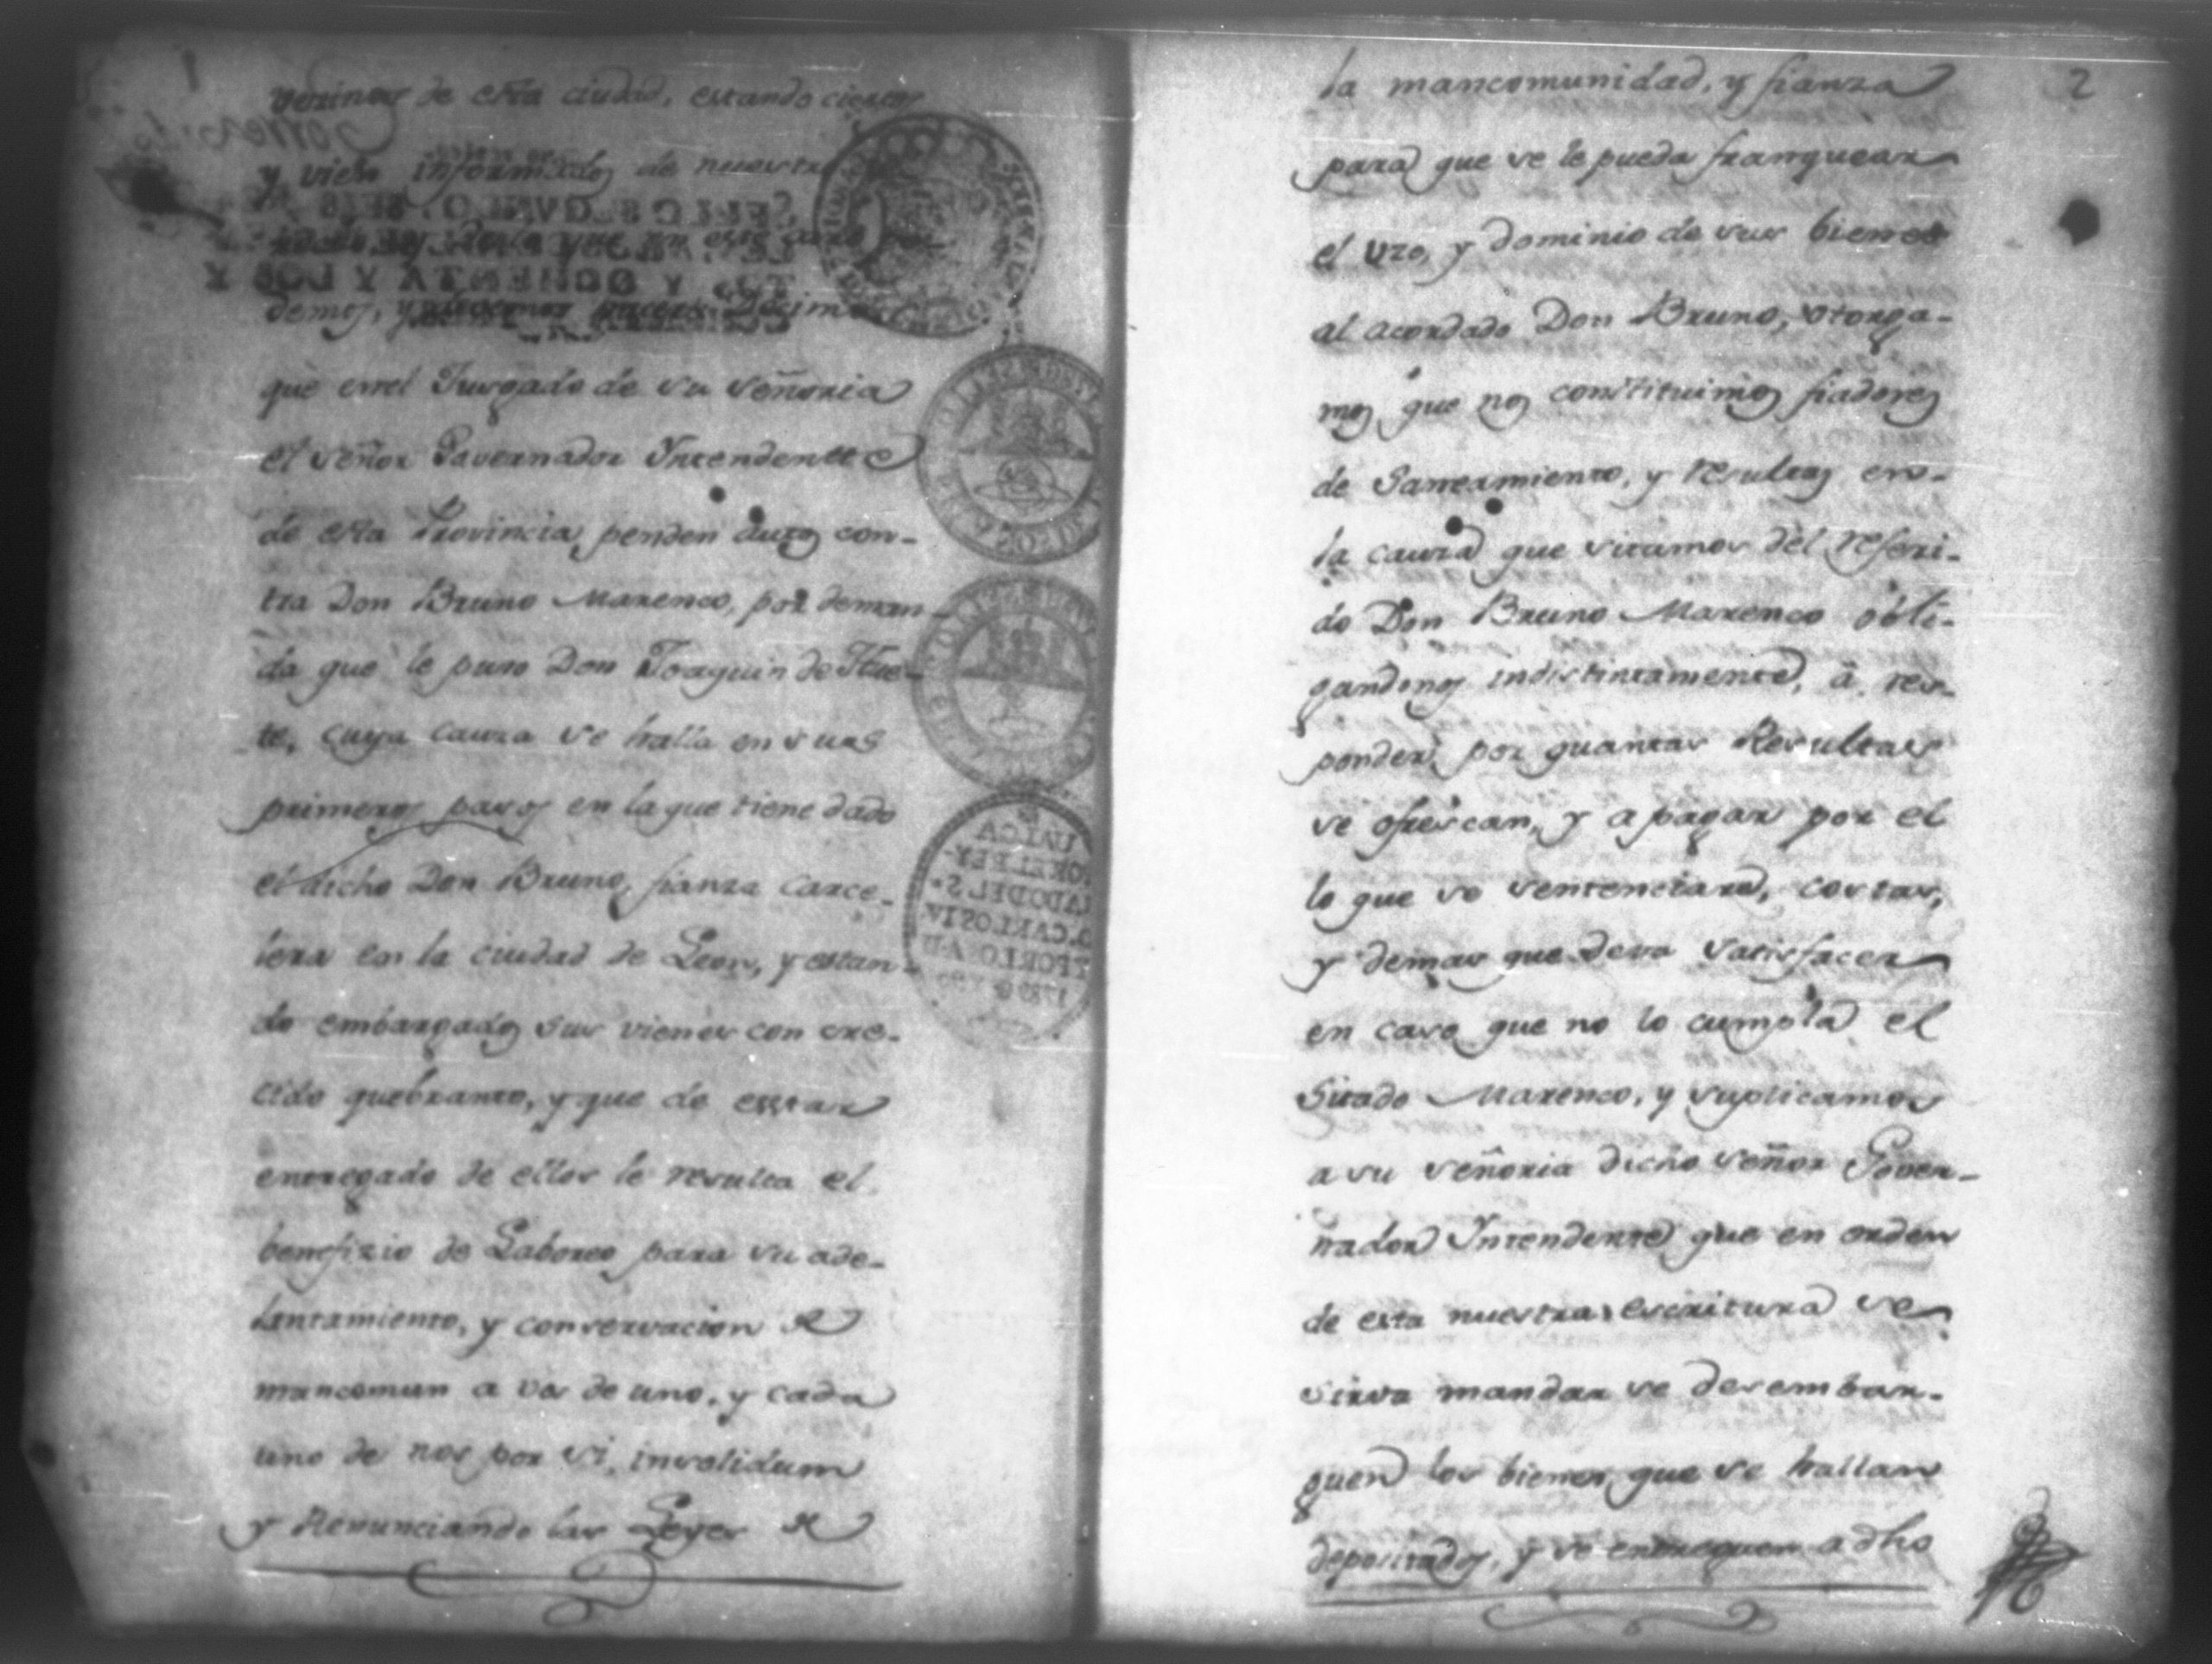 vezinos de esta ciudad, estando ciertos
y vien informados de nuestro
que en este caso
demos, y decimos
que enel Jusgado de su señoria
el señor Governador Yntendente
de esta Provincia penden autos con-
tra Don Bruno Marenco, por deman-
da que le puso Don Joaquin de
te, cuya causa se halla en sus
primeros pasos en la que tiene dado
el dicho Don Bruno, fianza carce-
lera en la ciudad de Leon, y estan-
do embargados sus vienes con cre-
cido quebranto, y que de estar
entregado de ellos le resulta el
benefizio de Labores para su ade-
lantamiento, y conservacion de
mancomun a vos de uno, y cada
uno de nos por si, insolidum
y Renunciando las Leyes de
2
la mancomunidad, y fianza
para que se le pueda franquear
el uzo, y dominio de sus bienes
al acordado Don Bruno, otorga-
mos que nos constituimos fiadores
de Saneamiento, y resultas en-
la causa que sitamos del referi-
do Don Bruno Marenco obli-
gandonos indistintamente, â res-
ponder, por quantas Resultas
se ofrescan, y a pagar por el
lo que se sentenciare, costas,
y demas que deva satisfacer
en caso que no lo cumpla el
Sitado Marenco, y suplicamos
a su señoria dicho señor Gover-
nador Yntendente que en orden
de esta nuestra escritura se
sirva mandar se desembar-
guen los bienes que se hallan
depositados, y se entreguen a dho